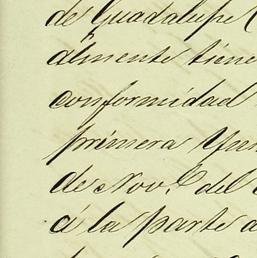 de Guadalupe
almente tiene
conformidad
primera Yun
de Nov.e del
á la parte a